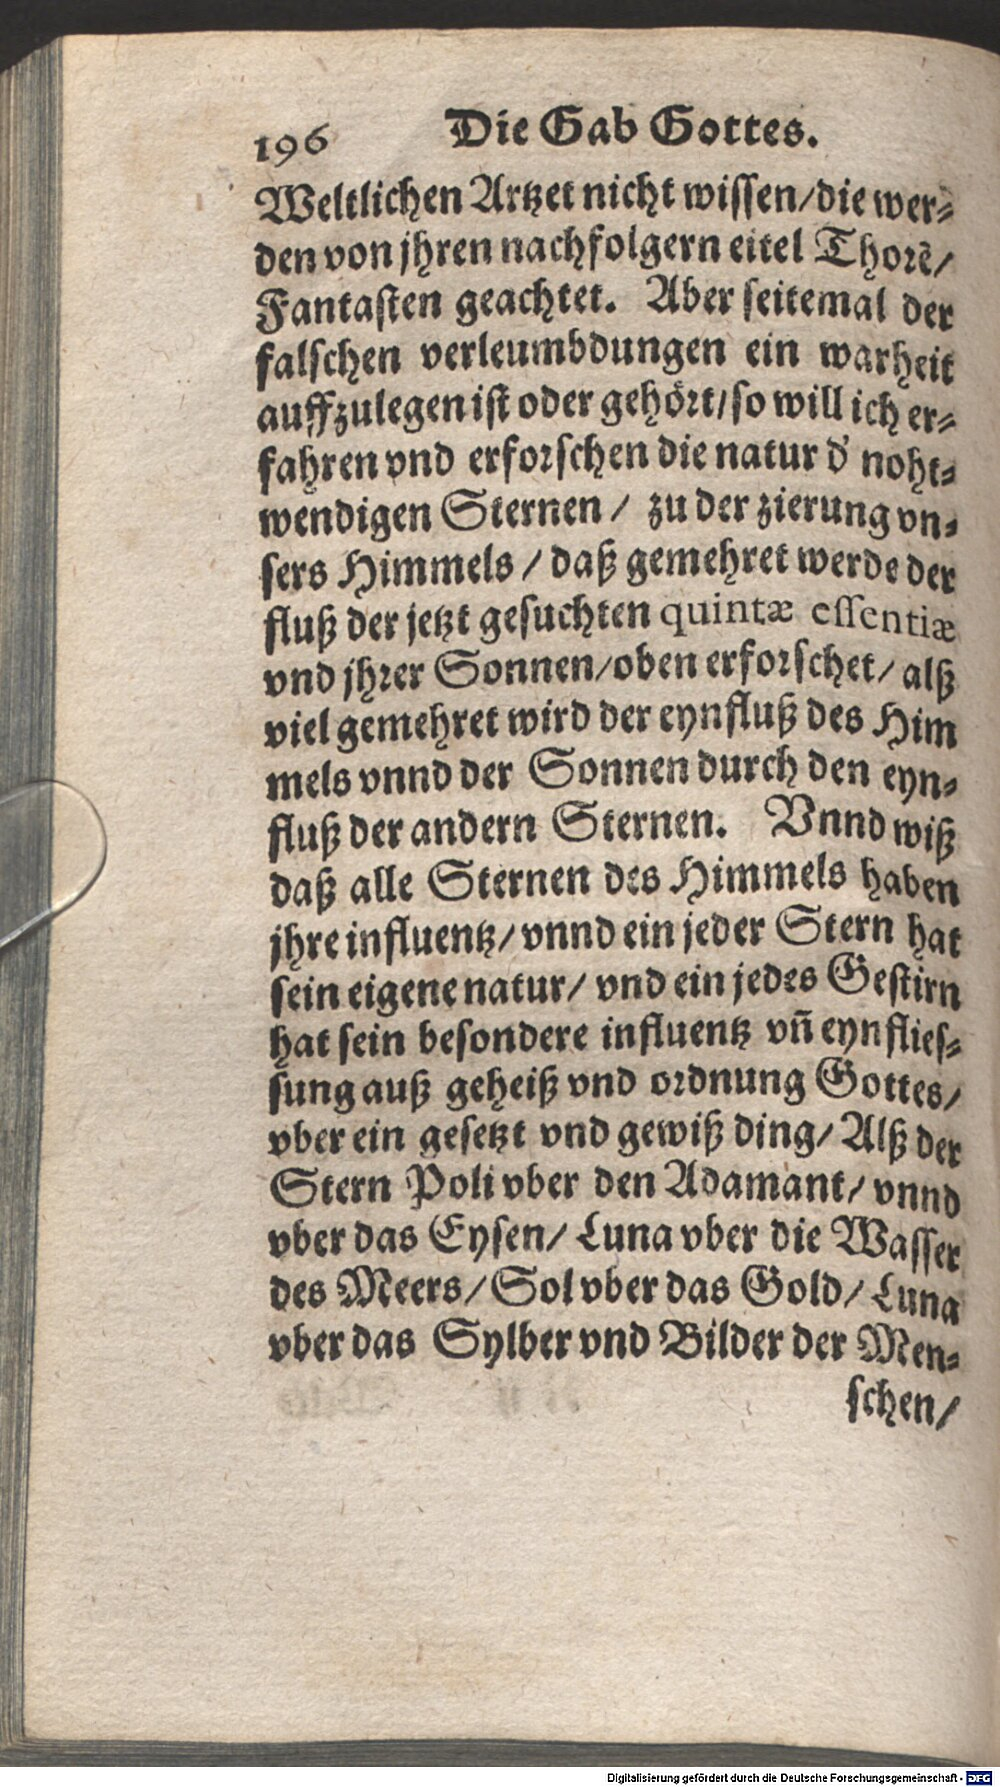 196 Die Gab Gottes.
Weltlichen Artzet nicht wissen/die wer⸗
den von jhren nachfolgern eitel Thorẽ/
Fantasten geachtet. Aber seitemal der
falschen verleumbdungen ein warheit
auffzulegen ist oder gehört/so will ich er⸗
fahren vnd erforschen die natur d' noht⸗
wendigen Sternen / zu der zierung vn⸗
sers Himmels / daß gemehret werde der
fluß der jetzt gesuchten quintæ essentiæ
vnd jhrer Sonnen/oben erforschet/ alß
viel gemehret wird der eynfluß des Him
mels vnnd der Sonnen durch den eyn⸗
fluß der andern Sternen. Vnnd wiß
daß alle Sternen des Himmels haben
jhre influentz/vnnd ein jeder Stern hat
sein eigene natur/ vnd ein jedes Gestirn
hat sein besondere influentz vñ eynflies⸗
sung auß geheiß vnd ordnung Gottes/
vber ein gesetzt vnd gewiß ding/ Alß der
Stern Poli vber den Adamant/ vnnd
vber das Eysen/ Luna vber die Wasser
des Meers/ Sol vber das Gold/ Luna
vber das Sylber vnd Bilder der Men⸗
schen/
Digitalisierung gefördert durch die Deutsche Forschungsgemeinschaft - DFG